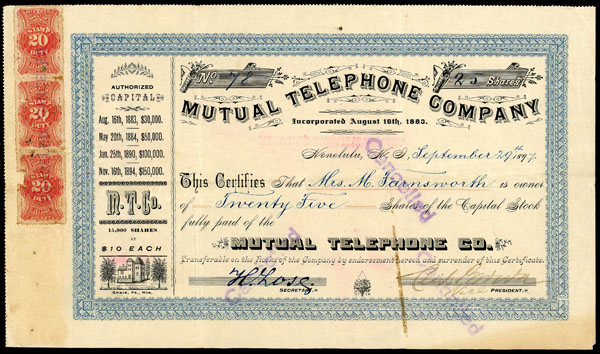 STAMP
20
DUTY
STAMP
20
DUTY
STAMP
20
DUTY
AUTHORIZED
CAPITAL
Aug. 16th, 1883, $30,000.
May 20th, 1884, $50,000.
Jan. 25th, 1890, $100,000.
Nov. 16th, 1894, $150,000.
M.T.Co.
15,000 SHARES
AT
$10 EACH
No 72
25 Shares
MUTUAL TELEPHONE COMPANY
Incorporated August 16th, 1883.
Honolulu, H. I, September 29th 1897.
This Certifies That Mrs. M. Farnsworth is owner
of Twenty Five Shares of the Capital Stock
fully paid of the
MUTUAL TELEPHONE CO.
Transferable on the Books of the Company by endorsement hereon and surrender of this Certificate.
SECRETARY.
PRESIDENT.